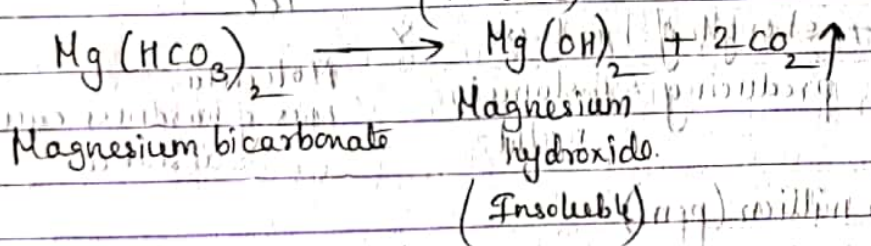 Mg(HCO₃)₂ ⟶ Mg(OH)₂ + 2CO₂↑
Magnesium bicarbonate Magnesium hydroxide.
(Insoluble)